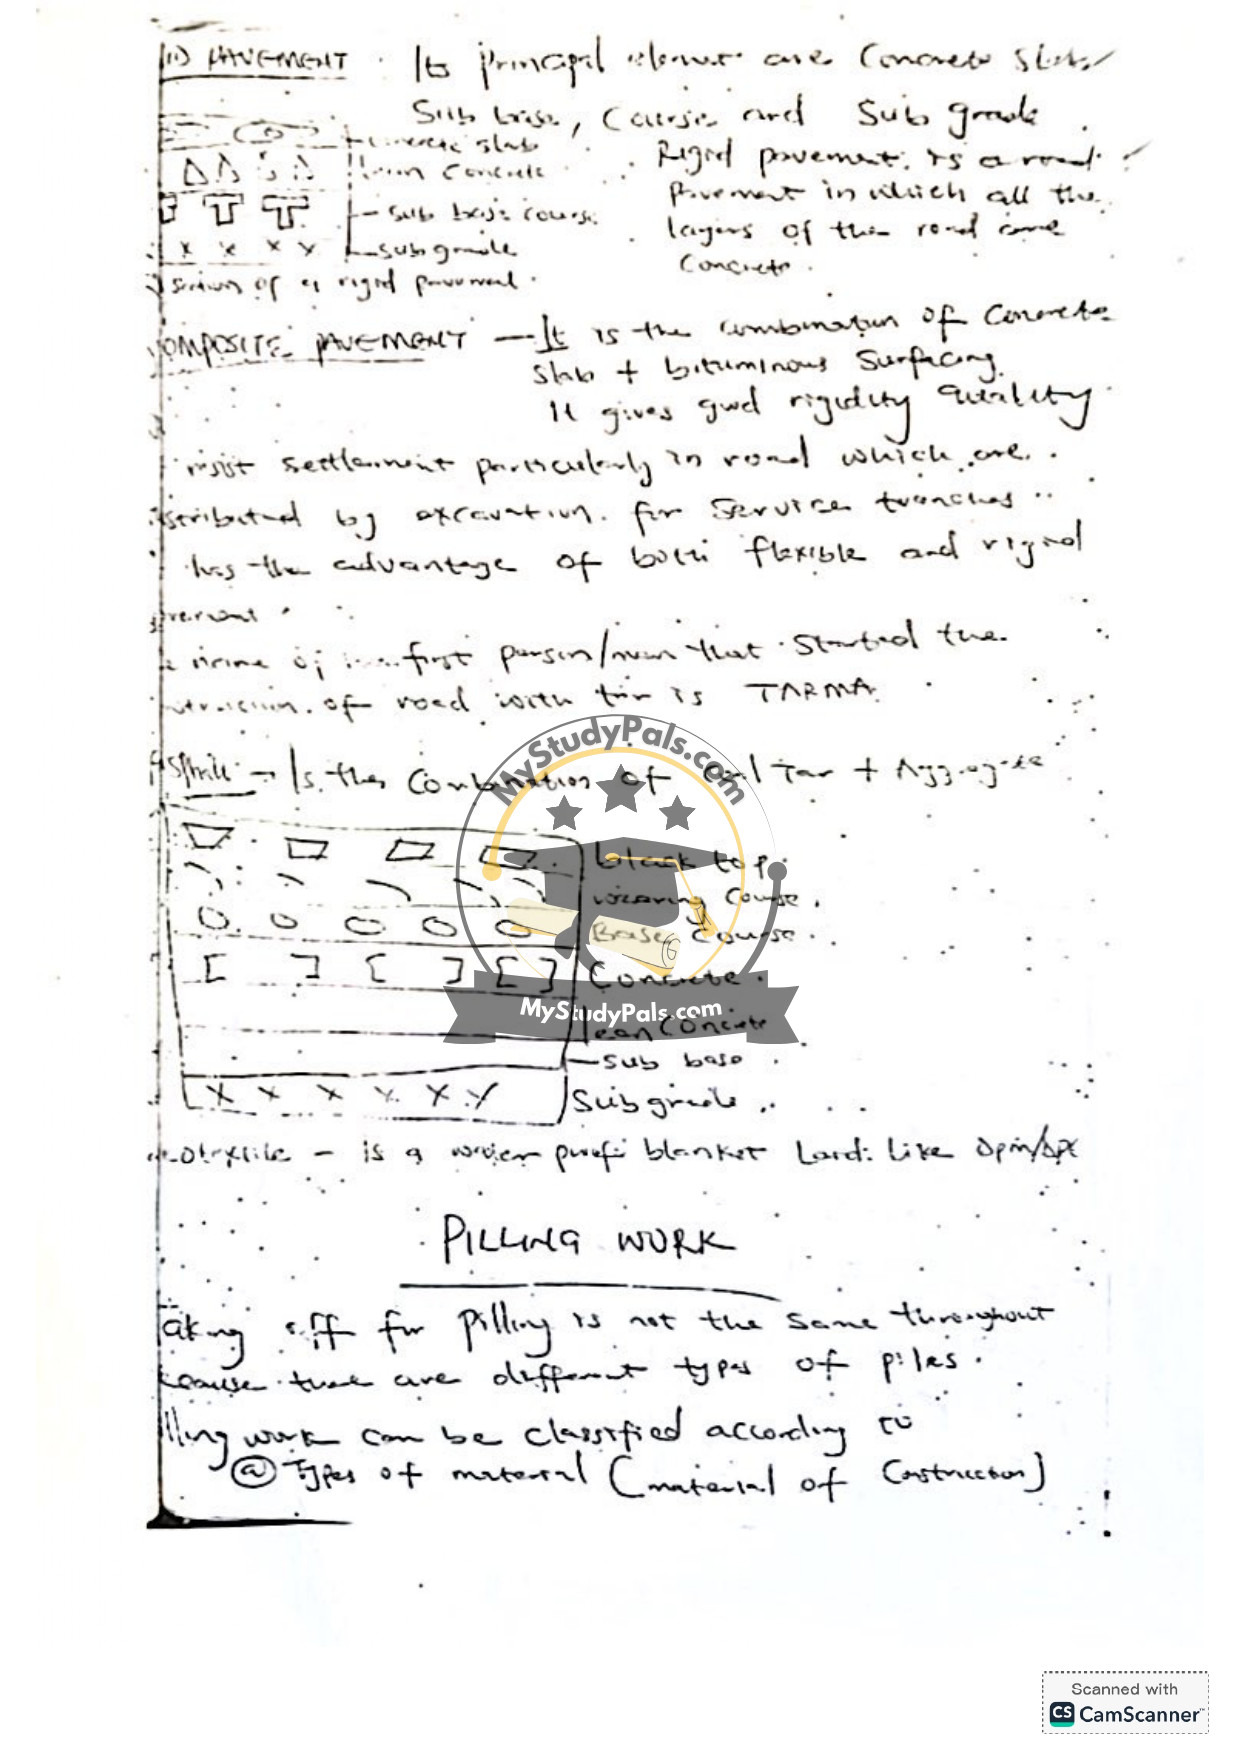 PAVEMENT. Its principal element are Concrete slab/
Sub base, Courses and Sub grade.
concrete slab
lean Concrete
sub base course
subgrade
Rigid pavement is a road
pavement in which all the
layers of the road are
Concrete.
section of a rigid pavement.
OMPOSITE PAVEMENT - It is the combination of Concrete
slab + bituminous Surfacing.
It gives good rigidity quality
resist settlement particularly in road which are
stributed by excavation for Service trenches
has the advantage of both flexible and rigid
first person/man that started the
of road with tar is TARMA
Is the Combination of Coal Tar + Aggregate
black top
wearing Course.
Base Course.
Concrete.
lean Concrete
Sub base
Subgrade
MyStudyPals.com
MyStudyPals.com
is a blanket Laid like
PILLING WORK
aking off for Pilling is not the same throughout
ecause there are different types of piles.
lling work can be classified according to
(a) Types of material (material of Construction)
Scanned with
CS CamScanner